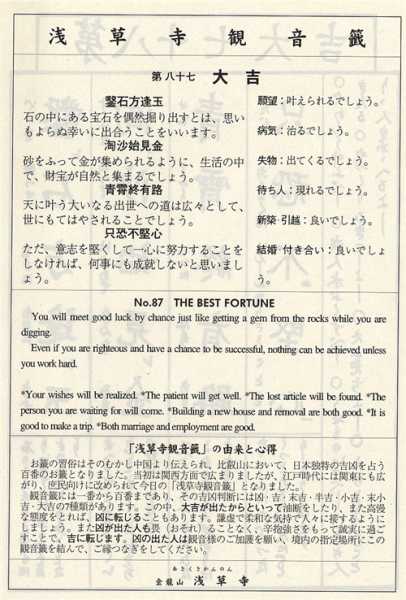 浅草寺観音籤
第八十七 大吉
鑿石方逢玉
石の中にある宝石を偶然掘り出すとは、思い
もよらぬ幸いに出合うことをいいます。
淘沙始見金
砂をふって金が集められるように、生活の中
で、財宝が自然と集まるでしょう。
青霄終有路
天に叶う大いなる出世への道は広々として、
世にもてはやされることでしょう。
只恐不堅心
ただ、意志を堅くして一心に努力することを
しなければ、何事にも成就しないと思いましょ
う。
願望：叶えられるでしょう。
病気：治るでしょう。
失物：出てくるでしょう。
待ち人：現れるでしょう。
新築・引越：良いでしょう。
結婚・付き合い：良いでしょ
う。
No.87 THE BEST FORTUNE
You will meet good luck by chance just like getting a gem from the rocks while you are
digging.
Even if you are righteous and have a chance to be successful, nothing can be achieved unless
you work hard.
*Your wishes will be realized. *The patient will get well. *The lost article will be found. *The
person you are waiting for will come. *Building a new house and removal are both good. *It is
good to make a trip. *Both marriage and employment are good.
「浅草寺観音籤」の由来と心得
お籤の習俗はそのむかし中国より伝えられ、比叡山において、日本独特の吉凶を占う
百番のお籤となりました。当初は関西方面で広まりましたが、江戸時代には関東にも広
がり、庶民向けに改められて今日の「浅草寺観音籤」となりました。
観音籤には一番から百番まであり、その吉凶判断には凶・吉・末吉・半吉・小吉・末小
吉・大吉の7種類があります。この中、大吉が出たからといって油断をしたり、また高慢
な態度をとれば、凶に転じることもあります。謙虚で柔和な気持で人々に接するようにし
ましょう。また凶が出た人も畏（おそ）れることなく、辛抱強さをもって誠実に過ご
すことで、吉に転じます。凶の出た人は観音様のご加護を願い、境内の指定場所にこの
観音籤を結んで、ご縁つなぎをしてください。
あさくさかんのん
金龍山 浅草寺